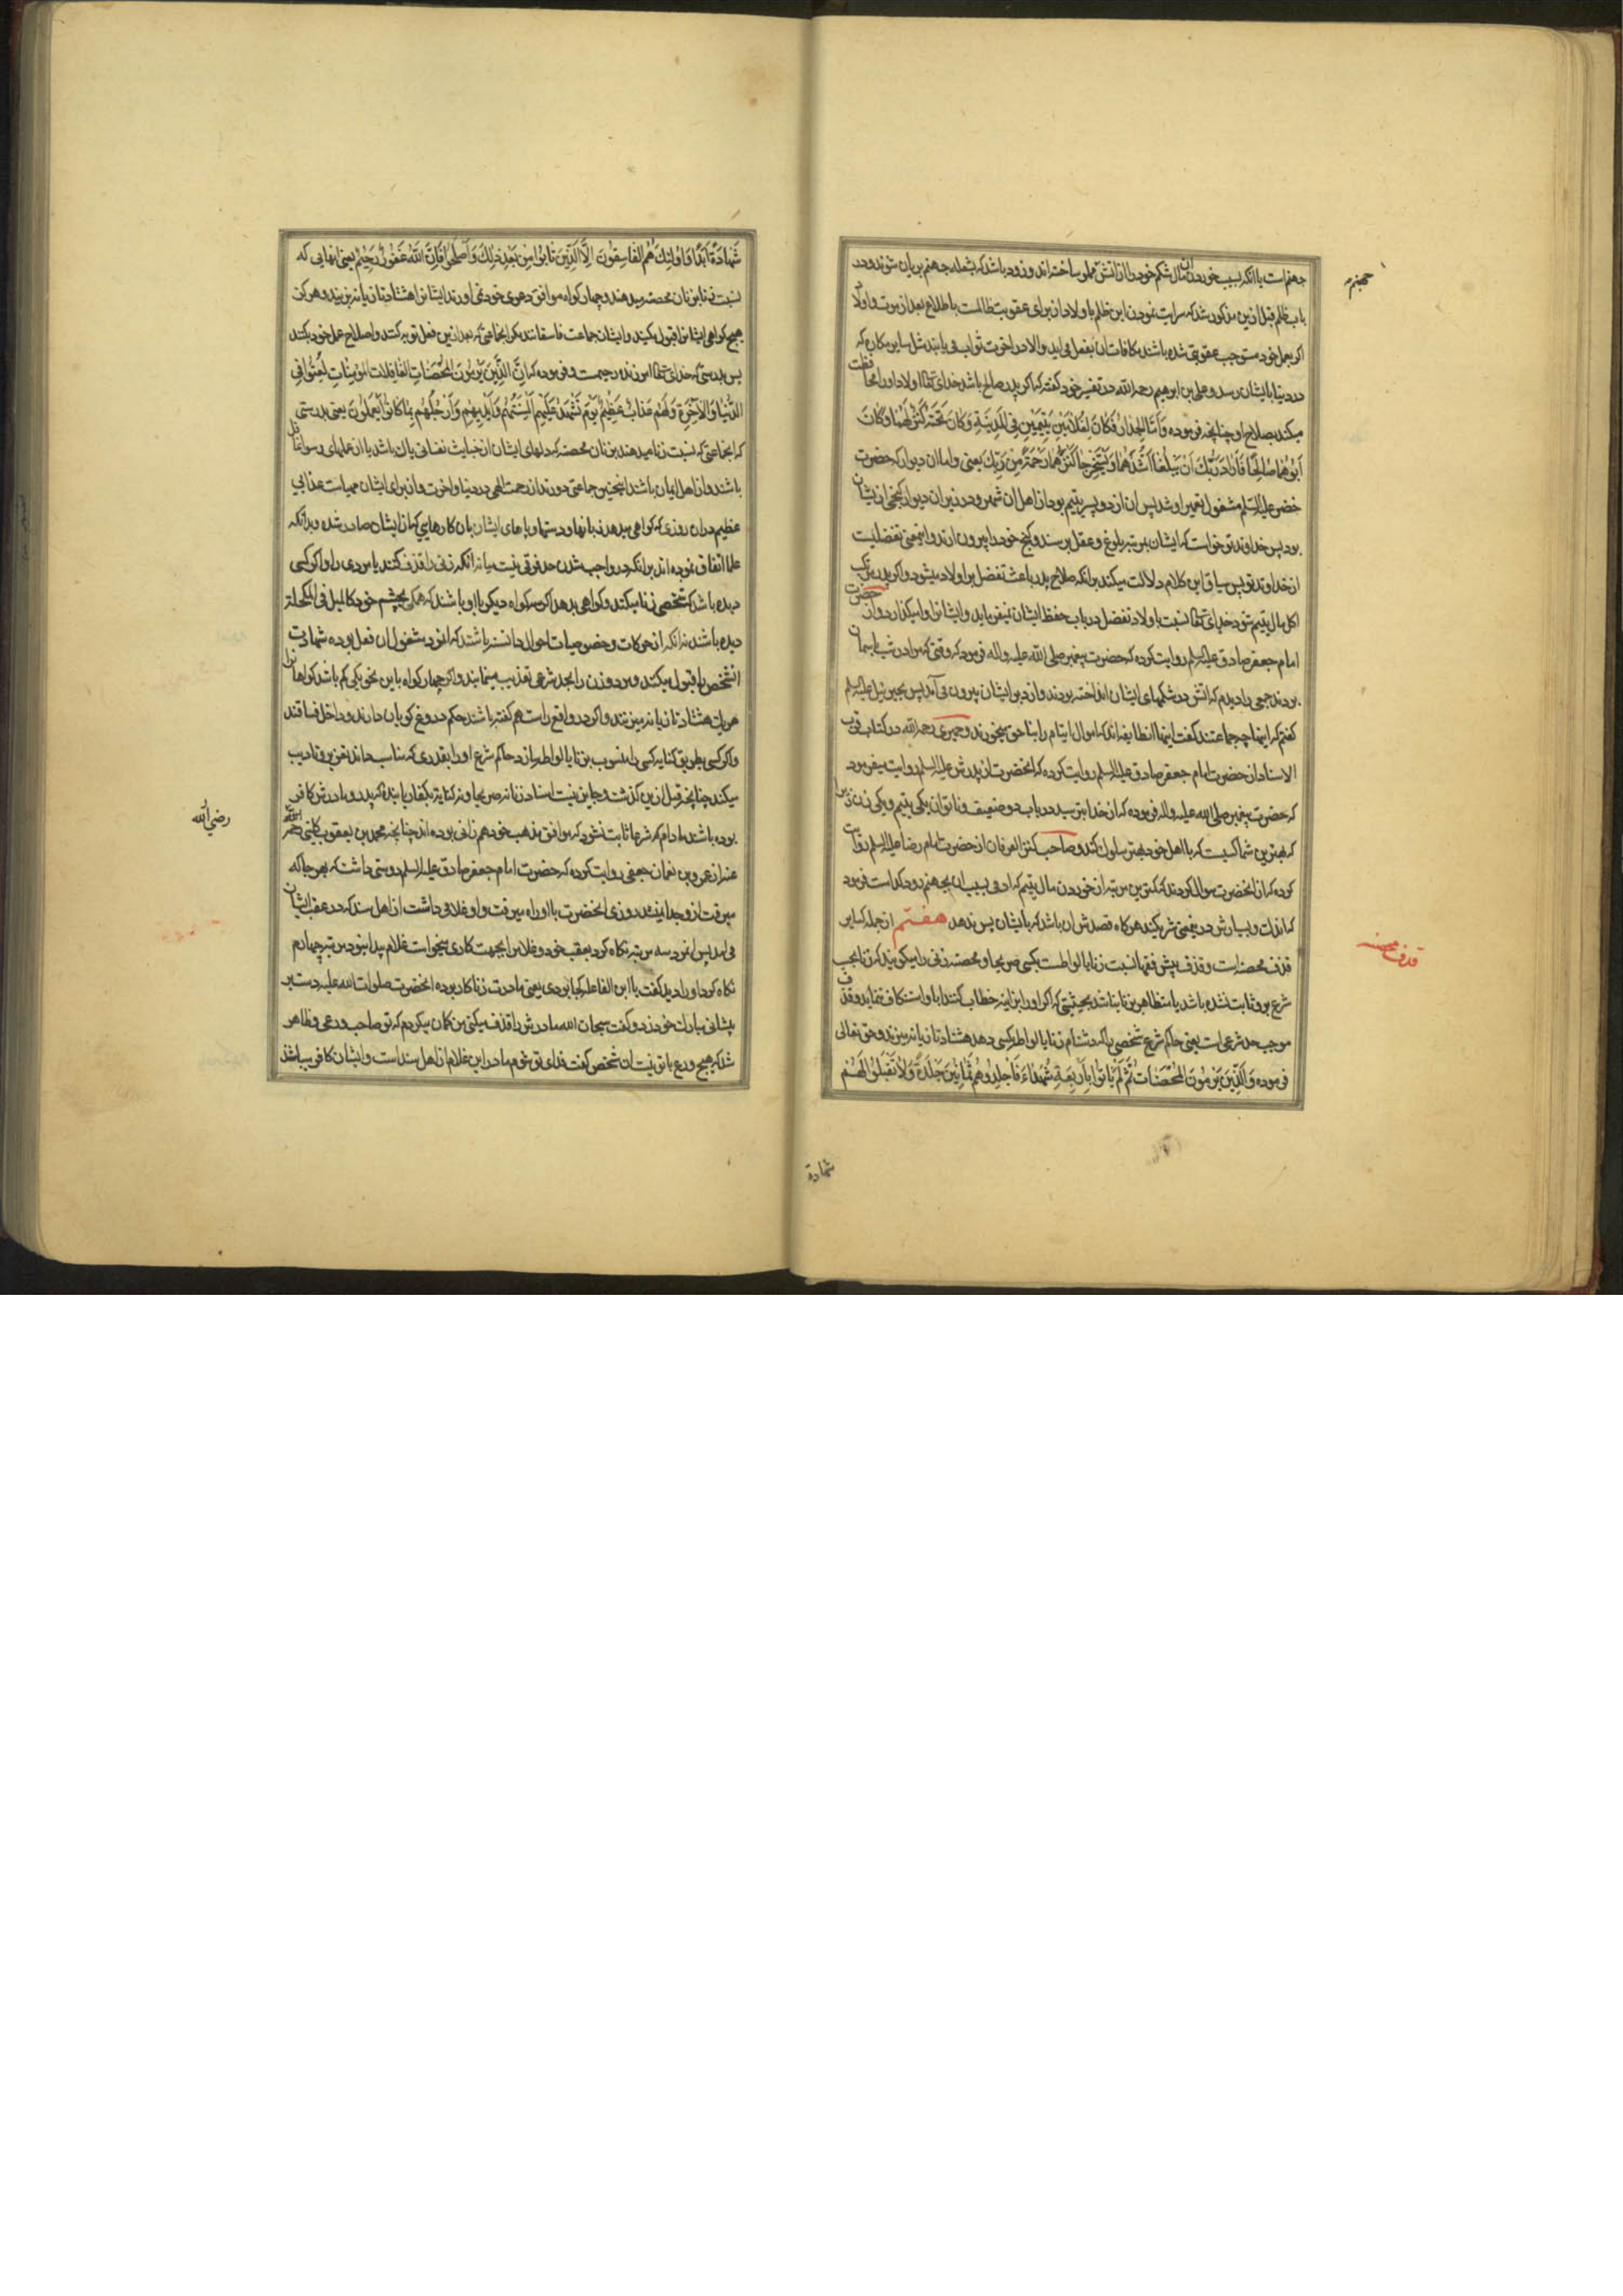 جهنم است یا انکه بسبب خوردن ان مال شکم خود را از اتش مملو ساخته اند و زود باشد که بشعله جهنم بریان شوند و در
باب ظلم قبل ازین مذکور شد که سرایت نمودن این ظلم باولاد از برای عقوبت ظالمست با طلاع بعد از موت و اولاد
اگر بعمل خود مستوجب عقوبتی شده باشند مکافات ان بفعل می اید والا در اخرت ثواب می یابند مثل سایر مکارن که
در دنیا بایشان رسد و علی بن ابرهیم رحمه الله در تفسیر خود گفته که اگر پدر صالح باشد خدای تعالی اولاد او را محافظت
میکند بصلاح او چنانچه فرموده وَأَمَّا الْجِدَارُ فَكَانَ لِغُلَامَيْنِ يَتِيمَيْنِ فِي الْمَدِينَةِ وَكَانَ تَحْتَهُ كَنْزٌ لَهُمَا وَكَانَ
أَبُوهُمَا صَالِحًا فَأَرَادَ رَبُّكَ أَنْ يَبْلُغَا أَشُدَّهُمَا وَيَسْتَخْرِجَا كَنْزَهُمَا رَحْمَةً مِنْ رَبِّكَ یعنی و اما ان دیوار که حضرت
خضر علیه السلم مشغول تعمیر او شد پس ان از دو پسر یتیم بود از اهل ان شهر و در زیر ان دیوار گنجی از ایشان
بود پس خداوند تو خواست که ایشان بمرتبه بلوغ و عقل برسند و گنج خود را بیرون ارند و اینمعنی تفضلیست
از خداوند تو پس سیاق این کلام دلالت میکند برانکه صلاح پدر باعث تفضل بر اولاد میشود و اگر پدر مرتکب
اکل مال یتیم شود خدای تعالی نسبت باولاد تفضل در باب حفظ ایشان نمیفرماید و ایشانرا وا میگذارد و از حضرت
امام جعفر صادق علیه السلم روایت کرده که حضرت پیغمبر صلی الله علیه و اله فرمود که وقتی که مرا در شب باسمان
بودند جمعی را دیدم که اتش در شکمهای ایشان انداخته بودند و از دبر ایشان بیرون می آمد پس بجبرئیل علیه السلم
گفتم که اینها چه جماعتند گفت اینها انطایفه اند که اموال ایتام را بناحق میخورند و حمیری رحمه الله در کتاب قرب
الاسناد از حضرت امام جعفر صادق علیه السلم روایت کرده که انحضرت از پدرش علیه السلم روایت میفرمود
که حضرت پیغمبر صلی الله علیه و اله فرموده که از خدا بترسید در باب دو ضعیف و ناتوان یکی یتیم و یکی زن زیرا
که بهترین شما کسیست که با اهل خود بهتر سلوک کند و صاحب کنز العرفان از حضرت امام رضا علیه السلم روایت
کرده که از انحضرت سوال کردند که کمترین مرتبه از خوردن مال یتیم که ادمی بسبب ان بجهنم رود کدام است فرمود
که اندک و بسیارش در ینمعنی شریکند هر گاه قصدش ان باشد که بایشان پس ندهد هفتم از جمله کبایر
قذف محصنه است و قذف پیش فقها نسبت زنا یا لواطست بکسی صریحا و محصنه زنی را میگویند که زنا بحسب
شرع برو ثابت نشده باشد یا متظاهر بزنا نباشد بحیثیتی که اگر او را بزانیه خطاب کنند ابا و استنکاف ننماید و قذف
موجب حد شرعی است یعنی حاکم شرع شخصی را که دشنام زنا یا لواطه بکسی دهد هشتاد تازیانه میزند و حق تعالی
فرموده وَالَّذِينَ يَرْمُونَ الْمُحْصَنَاتِ ثُمَّ لَمْ يَأْتُوا بِأَرْبَعَةِ شُهَدَاءَ فَاجْلِدُوهُمْ ثَمَانِينَ جَلْدَةً وَلَا تَقْبَلُوا لَهُمْ
قذف محصنه
شهادة
شَهَادَةً أَبَدًا وَأُولَئِكَ هُمُ الْفَاسِقُونَ إِلَّا الَّذِينَ تَابُوا مِنْ بَعْدِ ذَلِكَ وَأَصْلَحُوا فَإِنَّ اللَّهَ غَفُورٌ رَحِيمٌ یعنی انهایی که
نسبت زنا بزنان محصنه میدهند و چهار گواه موافق دعوی خود نمی اورند ایشانرا هشتاد تازیانه بزنید و هرگز
هیچ گواهی ایشانرا قبول مکنید و ایشان جماعت فاسقانند مگر انجماعتی که بعد ازین فعل توبه کنند و اصلاح عمل خود بکنند
پس بدرستی که خدای تعالی امرزنده رحیمست و فرموده که إِنَّ الَّذِينَ يَرْمُونَ الْمُحْصَنَاتِ الْغَافِلَاتِ الْمُؤْمِنَاتِ لُعِنُوا فِي
الدُّنْيَا وَالْآخِرَةِ وَلَهُمْ عَذَابٌ عَظِيمٌ يَوْمَ تَشْهَدُ عَلَيْهِمْ أَلْسِنَتُهُمْ وَأَيْدِيهِمْ وَأَرْجُلُهُمْ بِمَا كَانُوا يَعْمَلُونَ یعنی بدرستی
که انجماعتی که نسبت زنا میدهند بزنان محصنه که دلهای ایشان از خباثت نفسانی پاک باشد یا از عملهای رسوا غافل
باشند و از اهل ایمان باشند اینچنین جماعتی دورند از رحمت الهی در دنیا و اخرت و از برای ایشان مهیاست عذابی
عظیم در ان روزی که گواهی بدهد زبانها و دستها و پاهای ایشان بان کارهایی که از ایشان صادر شده و بدانکه
علما اتفاق نموده اند برانکه در واجب شدن حد فرقی نیست میانه انکه زنی را قذف کنند یا مردی را و اگر کسی
دیده باشد که شخصی زنا میکند و گواهی بدهد اگر سه گواه دیگر با او باشند که همگی بچشم خود کالمیل فی المکحلة
دیده باشند نه انکه از حرکات و خصوصیات احوال دانسته باشند که انمرد مشغول ان فعل بوده شهادت
انشخص را قبول میکنند و مرد و زن را بحد شرعی تعذیب مینمایند و اگر چهار گواه باین نحو یکی کم باشد گواهانرا
هر یک هشتاد تازیانه میزنند و اگر در واقع راست هم گفته باشند حکم دروغ گویان دارند و داخل فساقند
و اگر کسی بطریق کنایه کسی را منسوب بزنا یا لواطه سازد حاکم شرع او را بقدری که مناسب داند تعزیر و تادیب
میکند چنانچه قبل ازین گذشت و جایز نیست اسناد زنا نه صریحا و نه کنایة بکفار یا بنده که پدر و مادرش کافر
بوده باشند مادام که شرعا ثابت نشود که موافق مذهب خود هم زانی بوده اند چنانچه محمد بن یعقوب کلینی رحمه الله
عنه از عمرو بن نعمان جعفی روایت کرده که حضرت امام جعفر صادق علیه السلم دوستی داشت که بهر جا که
میرفت ازو جدا نمیشد روزی انحضرت با او راه میرفت و او غلامی داشت از اهل سند که در عقب ایشان
می امد پس انمرد سه مرتبه نگاه کرد بعقب خود و غلامرا بجهت کاری میخواست غلام پیدا نبود مرتبه چهارم
نگاه کرد او را دید گفت یا ابن الفاعله کجا بودی یعنی مادرت زناکار بوده انحضرت صلوات الله علیه دست بر
پیشانی مبارک خود زد و گفت سبحان الله مادرش را قذف میکنی من گمان میکردم که تو صاحب ورعی و ظاهر
شد که هیچ ورع با تو نیست ان شخص گفت فدای تو شوم مادر این غلام از اهل سند است و ایشان کافر میباشند
رضی الله